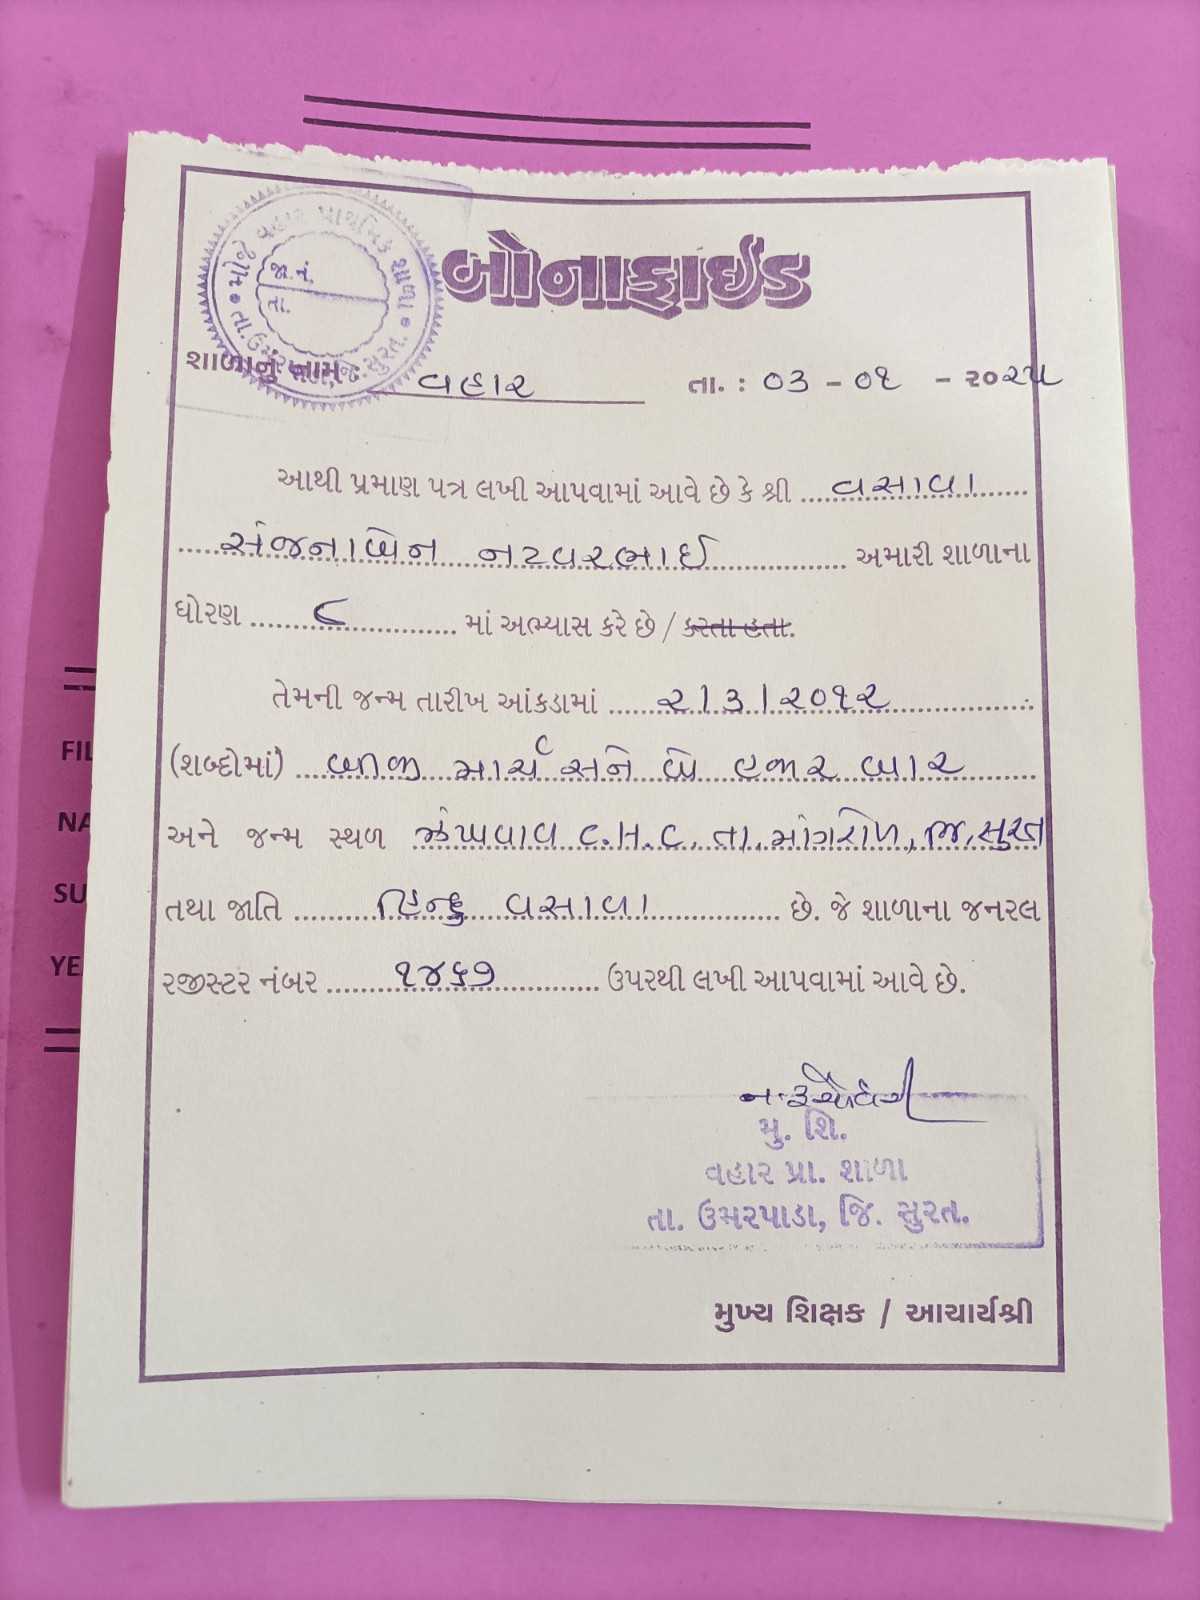 મોજે વહાર પ્રાથમિક શાળા
જા.નં.
તા.
તા. ઉમરપાડા, જિ. સુરત.
બોનાફાઈડ
શાળાનું નામ : વહાર તા. : ૦૩ - ૦૧ - ૨૦૨૫
આથી પ્રમાણ પત્ર લખી આપવામાં આવે છે કે શ્રી વસાવા
સંજનાબેન નટવરભાઈ અમારી શાળાના
ધોરણ ૮ માં અભ્યાસ કરે છે / કરતા હતા.
તેમની જન્મ તારીખ આંકડામાં ૨/૩/૨૦૧૨
(શબ્દોમાં) બીજી માર્ચ સને બે હજાર બાર
અને જન્મ સ્થળ ઝંખવાવ C.H.C. તા. માંગરોળ, જિ. સુરત
તથા જાતિ હિન્દુ વસાવા છે. જે શાળાના જનરલ
રજીસ્ટર નંબર ૧૪૬૭ ઉપરથી લખી આપવામાં આવે છે.
મુ. શિ.
વહાર પ્રા. શાળા
તા. ઉમરપાડા, જિ. સુરત.
મુખ્ય શિક્ષક / આચાર્યશ્રી
FIL
NA
SU
YE